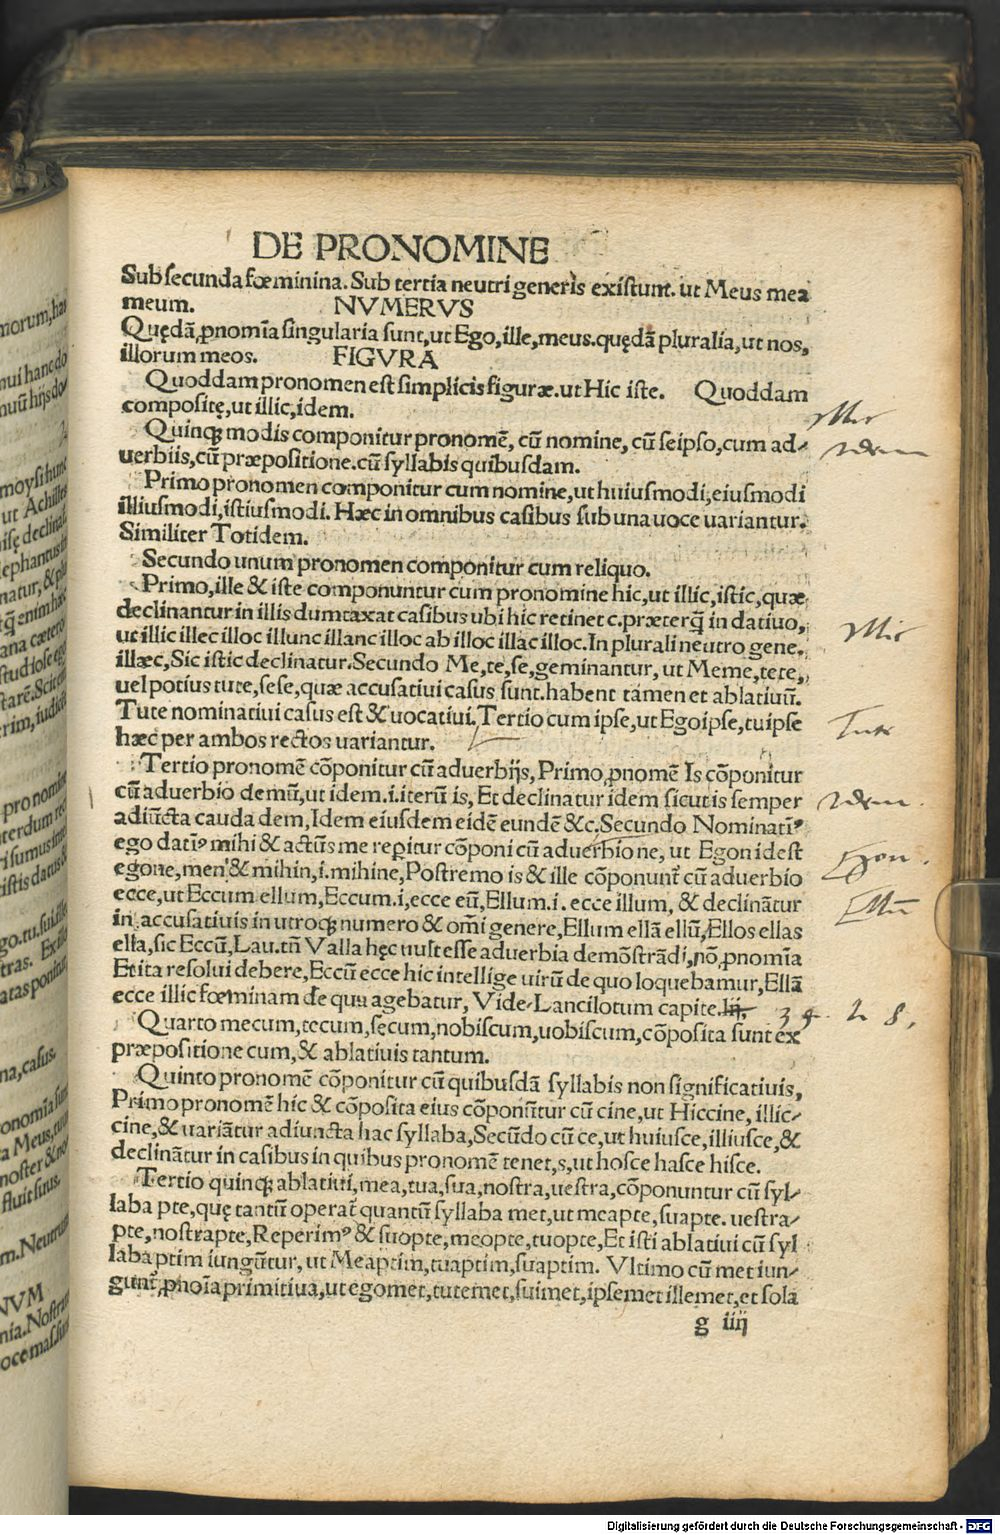 DE PRONOMINE
Sub secunda fœminina. Sub tertia neutri generis existunt. ut Meus mea
meum. NVMERVS
Quędã, ꝓnomĩa singularia sunt, ut Ego, ille, meus. quędã pluralia, ut nos,
illorum meos. FIGVRA
Quoddam pronomen est simplicis figuræ. ut Hic iste. Quoddam
compositę, ut illic, idem.
Quinqꝫ modis componitur pronomẽ, cũ nomine, cũ seipso, cum ad-
uerbiis, cũ præpositione. cũ syllabis quibusdam.
Primo pronomen componitur cum nomine, ut huiusmodi, eiusmodi
illiusmodi, istiusmodi. Hæc in omnibus casibus sub una uoce uariantur.
Similiter Totidem.
Secundo unum pronomen componitur cum reliquo.
Primo, ille & iste componuntur cum pronomine hic, ut illic, istic, quæ
declinantur in illis dumtaxat casibus ubi hic retinet c. præterq̃ in datiuo,
ut illic illec illoc illunc illanc illoc ab illoc illac illoc. In plurali neutro gene.
illæc, Sic istic declinatur. Secundo Me, te, se, geminantur, ut Meme, tete,
uel potius tute, sese, quæ accusatiui casus sunt. habent tamen et ablatiuũ.
Tute nominatiui casus est & uocatiui. Tertio cum ipse, ut Ego ipse, tu ipse
hæc per ambos rectos uariantur.
Tertio pronomẽ cõponitur cũ aduerbijs, Primo, ꝓnomẽ Is cõponitur
cũ aduerbio demũ, ut idem .i. iterũ is, Et declinatur idem sicut is semper
adiũcta cauda dem, Idem eiusdem eidẽ eundẽ &c. Secundo Nominatiꝰ
ego datiꝰ mihi & actũs me reꝑitur cõponi cũ aduerbio ne, ut Egon id est
egone, men & mihin, i. mihine, Postremo is & ille cõponunt̃ cũ aduerbio
ecce, ut Eccum ellum, Eccum .i, ecce eũ, Ellum .i. ecce illum, & declinãtur
in accusatiuis in utroqꝫ numero & om̃i genere, Ellum ellã ellũ, Ellos ellas
ella, sic Eccũ, Lau. tñ Valla hęc uult esse aduerbia demõstrãdi, nõ ꝓnomĩa
Et ita resolui debere, Eccũ ecce hic intellige uirũ de quo loquebamur, Ellã
ecce illic fœminam de qua agebatur, Vide Lancilotum capite. 34. 28,
Quarto mecum, tecum, secum, nobiscum, uobiscum, cõposita sunt ex
præpositione cum, & ablatiuis tantum.
Quinto pronomẽ cõponitur cũ quibusdã syllabis non significatiuis,
Primo pronomẽ hic & cõposita eius cõponũtur cũ cine, ut Hiccine, illic-
cine, & uariãtur adiuncta hac syllaba, Secũdo cũ ce, ut huiusce, illiusce, &
declinãtur in casibus in quibus pronomẽ tenet, s, ut hosce hasce hisce.
Tertio quinqꝫ ablatiui, mea, tua, sua, nostra, uestra, cõponuntur cũ syl-
laba pte, quę tantũ operat̃ quantũ syllaba met, ut meapte, suapte. uestra-
pte, nostrapte, Reperimꝰ & suopte, meopte, tuopte, Et isti ablatiui cũ syl
laba ptim iungũtur, ut Meaptim, tuaptim, suaptim. Vltimo cũ met iun-
gunt̃, ꝓnoĩa primitiua, ut egomet, tutemet, suimet, ipsemet illemet, et sola
g iiij
illic
idem
illic
Tute
idem.
Egon.
Ellũ
Digitalisierung gefördert durch die Deutsche Forschungsgemeinschaft - DFG